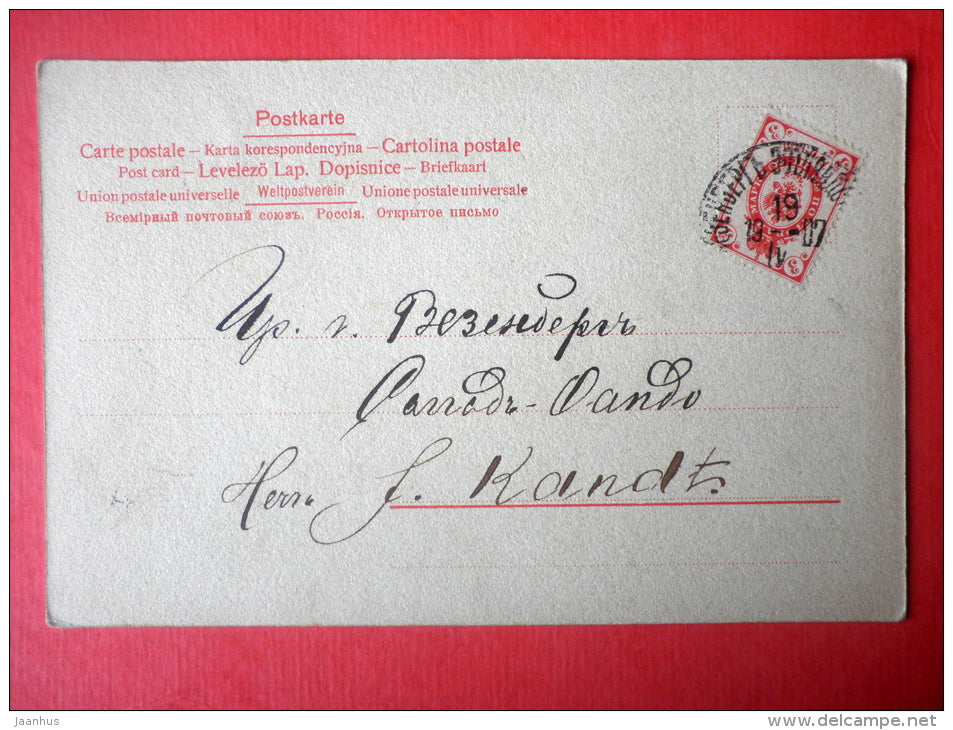 Postkarte
Carte postale – Karta korespondencyjna – Cartolina postale
Post card – Levelezö Lap. Dopisnice – Briefkaart
Union postale universelle Weltpostverein Unione postale universale
Всемірный почтовый союзъ. Россія. Открытое письмо
19
19 - - 07
IV
3
3
3
МАР
ПОЧ
г. Везенбергъ
Herrn J. Kandt.
jaanhus
www.delcampe.net